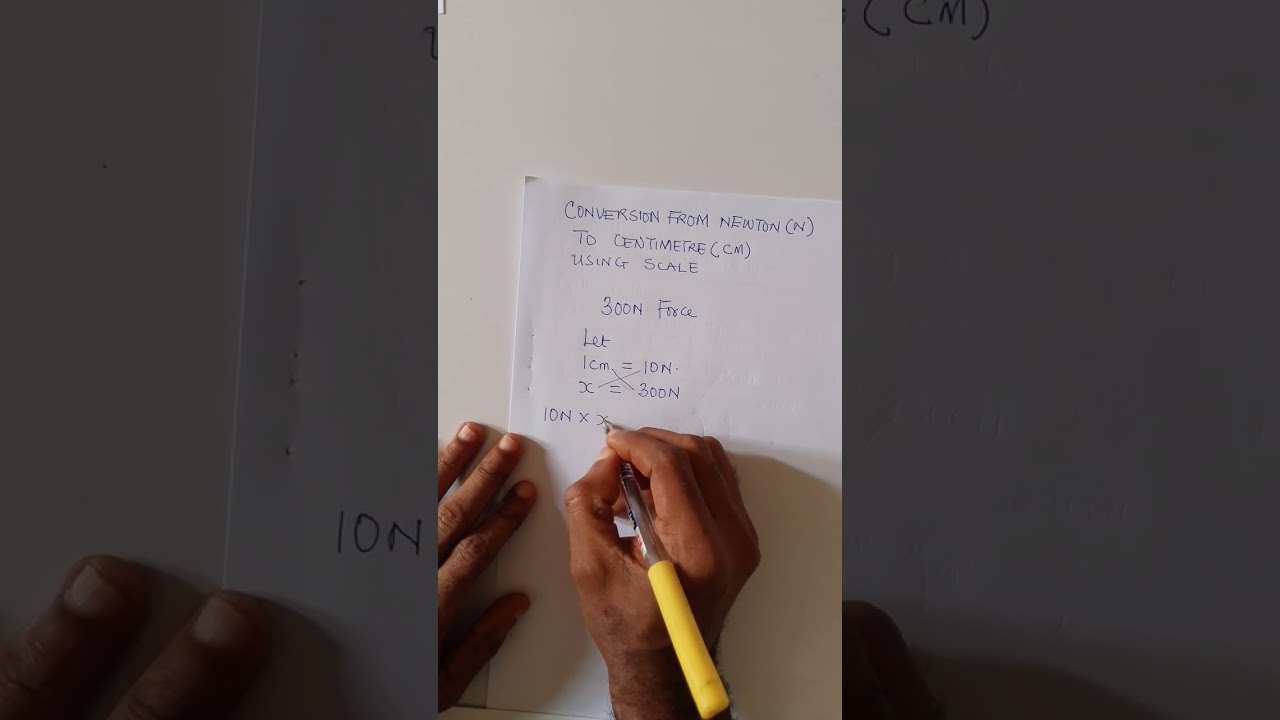 CONVERSION FROM NEWTON (N)
TO CENTIMETRE (CM)
USING SCALE
300N Force
Let
1cm = 10N.
x = 300N
10N × x